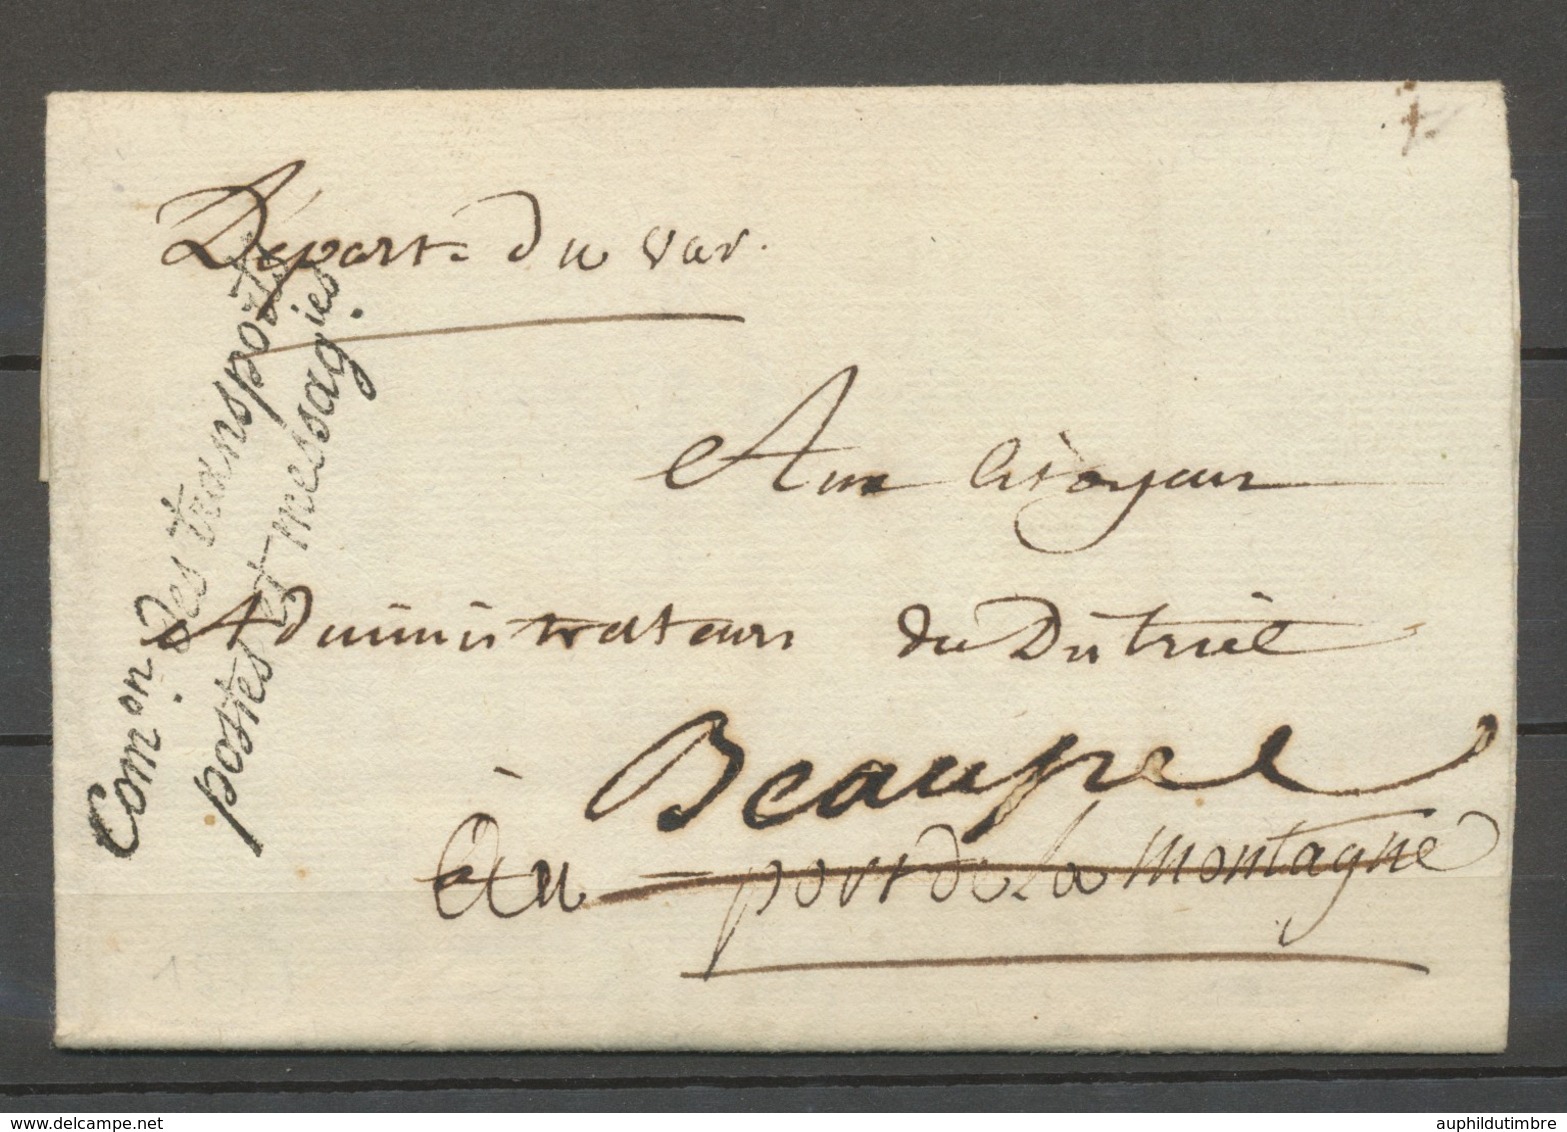 Départ. du var.
Com.on des transports
postes et messagies.
Aux citoyens
Administrateurs du District
à Beaupré
Au - port de la montagne
auphildutimbre.com